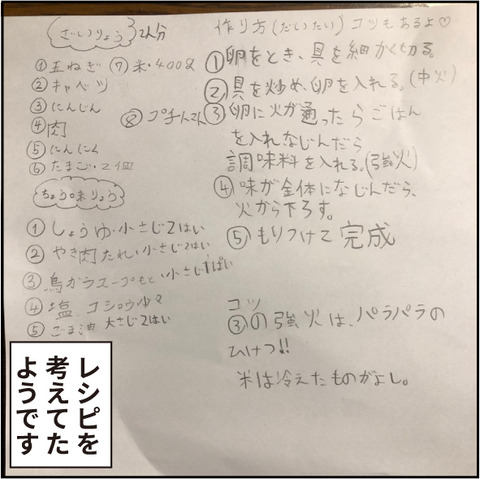 ざいりょう 2人分
① 玉ねぎ ⑦ 米・400g
② キャベツ
③ にんじん
④ 肉
⑤ にんにく
⑥ たまご・2個
⑧ プチトマト
ちょう味りょう
① しょうゆ・小さじ2はい
② やき肉たれ・小さじ2はい
③ 鳥ガラスープもと・小さじ1ぱい
④ 塩、コショウ少々
⑤ ごま油 大さじ2はい
作り方(だいたい)コツもあるよ♡
① 卵をとき、具を細かく切る。
② 具を炒め、卵を入れる。(中火)
③ 卵に火が通ったらごはん
を入れなじんだら
調味料を入れる。(強火)
④ 味が全体になじんだら、
火から下ろす。
⑤ もりつけて完成
コツ
③の強火は、パラパラの
ひけつ!!
米は冷えたものがよし。
レシピを
考えてた
ようです